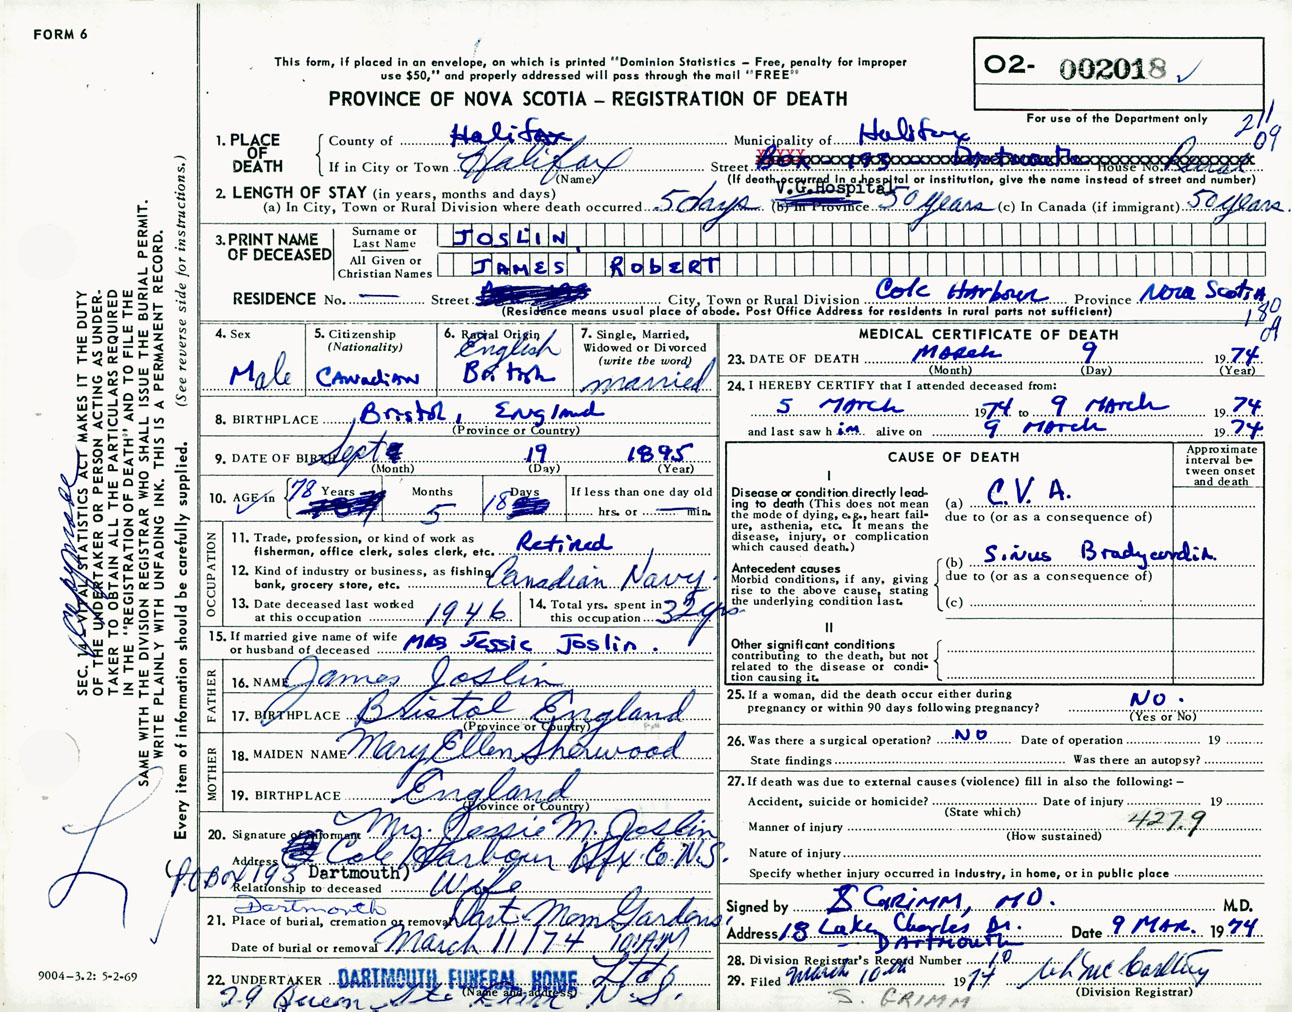 FORM 6
This form, if placed in an envelope, on which is printed "Dominion Statistics – Free, penalty for improper
use $50," and properly addressed will pass through the mail "FREE"
PROVINCE OF NOVA SCOTIA – REGISTRATION OF DEATH
02- 002018
For use of the Department only
211
09
1. PLACE OF DEATH
County of Halifax Municipality of Halifax
If in City or Town Halifax Street Box 193 Dartmouth House No. Rural
(Name) (If death occurred in a hospital or institution, give the name instead of street and number)
V.G.Hospital
2. LENGTH OF STAY (in years, months and days)
(a) In City, Town or Rural Division where death occurred 5 days (b) In Province 50 years (c) In Canada (if immigrant) 50 years.
3. PRINT NAME OF DECEASED
Surname or Last Name JOSLIN,
All Given or Christian Names JAMES ROBERT
RESIDENCE No. — Street City, Town or Rural Division Cole Harbour Province Nova Scotia
(Residence means usual place of abode. Post Office Address for residents in rural parts not sufficient)
180
09
4. Sex Male
5. Citizenship (Nationality) Canadian
6. Racial Origin English British
7. Single, Married, Widowed or Divorced (write the word) married
8. BIRTHPLACE Bristol, England
(Province or Country)
9. DATE OF BIRTH Sept 19 1895
(Month) (Day) (Year)
10. AGE in 78 Years Months 5 18 Days If less than one day old
hrs. or — min.
OCCUPATION
11. Trade, profession, or kind of work as
fisherman, office clerk, sales clerk, etc. Retired
12. Kind of industry or business, as fishing,
bank, grocery store, etc. Canadian Navy.
13. Date deceased last worked
at this occupation 1946
14. Total yrs. spent in
this occupation 32 yrs.
15. If married give name of wife
or husband of deceased MRS Jessie Joslin.
FATHER
16. NAME James Joslin
17. BIRTHPLACE Bristol England
(Province or Country)
MOTHER
18. MAIDEN NAME Mary Ellen Sherwood
19. BIRTHPLACE England
(Province or Country)
20. Signature of Informant Mrs. Jessie M. Joslin
Address Cole Harbour Hfx. Co. N.S.
P.O Box 193 Dartmouth)
Relationship to deceased Wife
Dartmouth
21. Place of burial, cremation or removal Dart. Mem. Gardens
Date of burial or removal March 11/74 10 AM
22. UNDERTAKER DARTMOUTH FUNERAL HOME Ltd.
(Name and address)
79 N.S.
MEDICAL CERTIFICATE OF DEATH
23. DATE OF DEATH March 9 1974
(Month) (Day) (Year)
24. I HEREBY CERTIFY that I attended deceased from:
5 March 1974 to 9 March 1974
and last saw him alive on 9 March 1974
CAUSE OF DEATH
Approximate interval between onset and death
I
Disease or condition directly leading to death (This does not mean
the mode of dying, e.g., heart failure, asthenia, etc. It means the
disease, injury, or complication
which caused death.)
(a) C.V.A.
due to (or as a consequence of)
Antecedent causes
Morbid conditions, if any, giving
rise to the above cause, stating
the underlying condition last.
(b) Sinus Bradycardia.
due to (or as a consequence of)
(c)
II
Other significant conditions
contributing to the death, but not
related to the disease or condition causing it.
25. If a woman, did the death occur either during
pregnancy or within 90 days following pregnancy? NO.
(Yes or No)
26. Was there a surgical operation? NO Date of operation 19
State findings Was there an autopsy?
27. If death was due to external causes (violence) fill in also the following: –
Accident, suicide or homicide? Date of injury 19
(State which)
427.9
Manner of injury
(How sustained)
Nature of injury
Specify whether injury occurred in industry, in home, or in public place
Signed by S GRIMM, MD. M.D.
Address 18 Lake Charles Dr. Date 9 MAR. 1974
DARTMOUTH
28. Division Registrar's Record Number 10
29. Filed March 10th 1974
(Division Registrar)
S. GRIMM
SEC. VITAL STATISTICS ACT MAKES IT THE DUTY
OF THE UNDERTAKER OR PERSON ACTING AS UNDERTAKER TO OBTAIN ALL THE PARTICULARS REQUIRED
IN THE "REGISTRATION OF DEATH" AND TO FILE THE
SAME WITH THE DIVISION REGISTRAR WHO SHALL ISSUE THE BURIAL PERMIT.
WRITE PLAINLY WITH UNFADING INK. THIS IS A PERMANENT RECORD.
Every item of information should be carefully supplied. (See reverse side for instructions.)
9004-3.2: 5-2-69